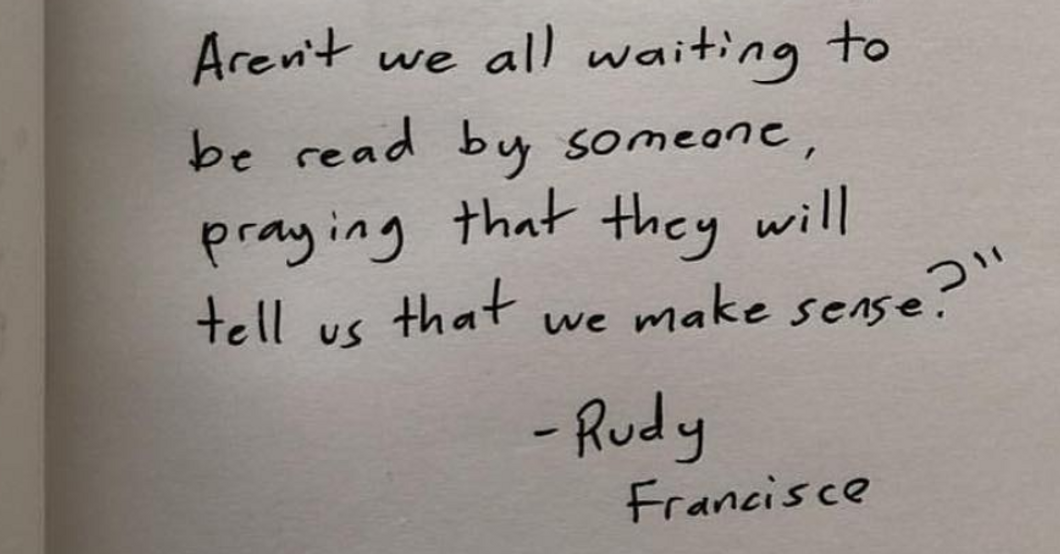 Aren't we all waiting to
be read by someone,
praying that they will
tell us that we make sense?"
- Rudy
Francisce